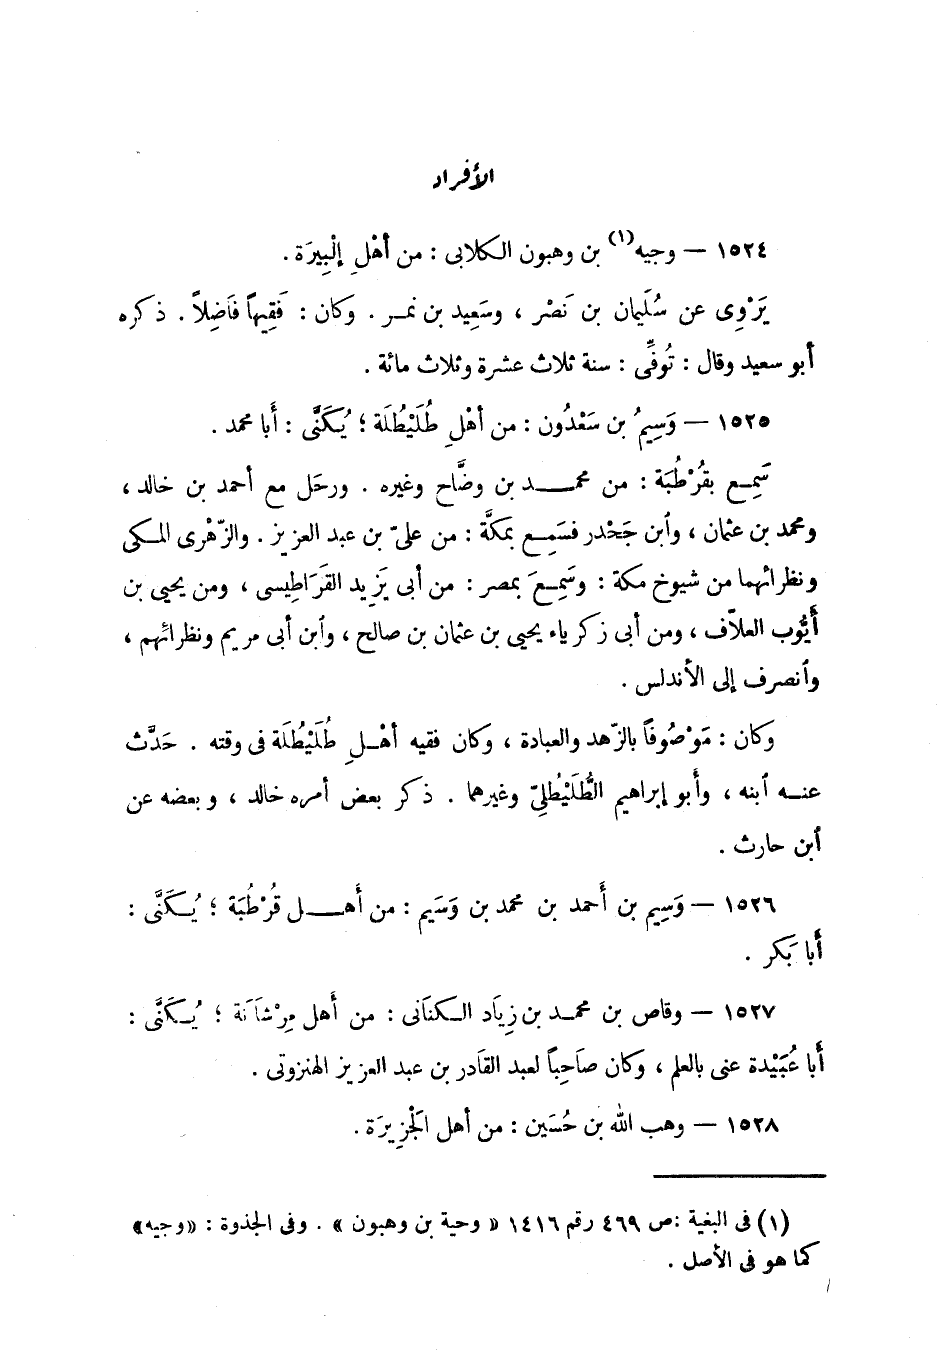 الأفراد
١٥٢٤ — وجيه(١) بن وهبون الكلابى : من أهْلِ إلْبِيرَة .
يَرْوِى عن سُلَيمان بن نَصْر ، وسَعِيد بن نمـر . وكان : فَقِيهاً فَاضِلاً . ذكره
أبو سعيد وقال : تُوفِّى : سنة ثلاث عشرة وثلاث مائة .
١٥٢٥ — وَسِيمُ بن سَعْدُون : من أهْلِ طُلَيْطُلَة ؛ يُـكَنَّى : أَبا محمد .
سَمِـع بقُرْطُبَة : من محمـــد بن وضَّاح وغيره . ورحَل مع أحمد بن خالد ،
ومحمد بن عثمان ، وٱبن جَحْدر فسَمِـع بمَكَّة : من علىّ بن عبد العزيز . والزّهْرى المـكى
ونظرائهما من شيوخ مكة : وسَمِـعَ بمصر : من أبى يَزِيد القَرَاطِيسى ، ومن يحيى بن
أيُّوب العلاّف ، ومن أبى زكرياء يحيى بن عثمان بن صالح ، وٱبن أبى مريم ونظرائهم ،
وٱنصرف إلى الأندلس .
وكان : مَوْصُوفاً بالزّهد والعبادة ، وكان فقيه أهْـلِ طُلَيْطُلَة فى وقته . حَدَّث
عنـه ٱبنه ، وأَبو إبراهيم الطُّلَيْطُلِىّ وغيرهما . ذكر بعض أمره خالد ، وبعضه عن
ٱبن حارث .
١٥٢٦ — وَسِيم بن أَحمد بن محمد بن وَسَيم : من أَهـــل قُرْطُبَة ؛ يُـكَنَّى :
أَبا بَكر .
١٥٢٧ — وقاص بن محمـد بن زِيَاد الـكنَانى : من أَهل مِرْشَانَة ؛ يُـكَنَّى :
أَبا عُبَيْدة عنى بالعلم ، وكان صَاحِباً لعبد القَادر بن عبد العزيز الهنزوتى .
١٥٢٨ — وهب الله بن حُسَين : من أهل الَجْزِيرَة .
(١) فى البغية :ص ٤٦٩ رقم ١٤١٦ « وحية بن وهبون » . وفى الجذوة : «وجيه»
كما هو فى الأصل .